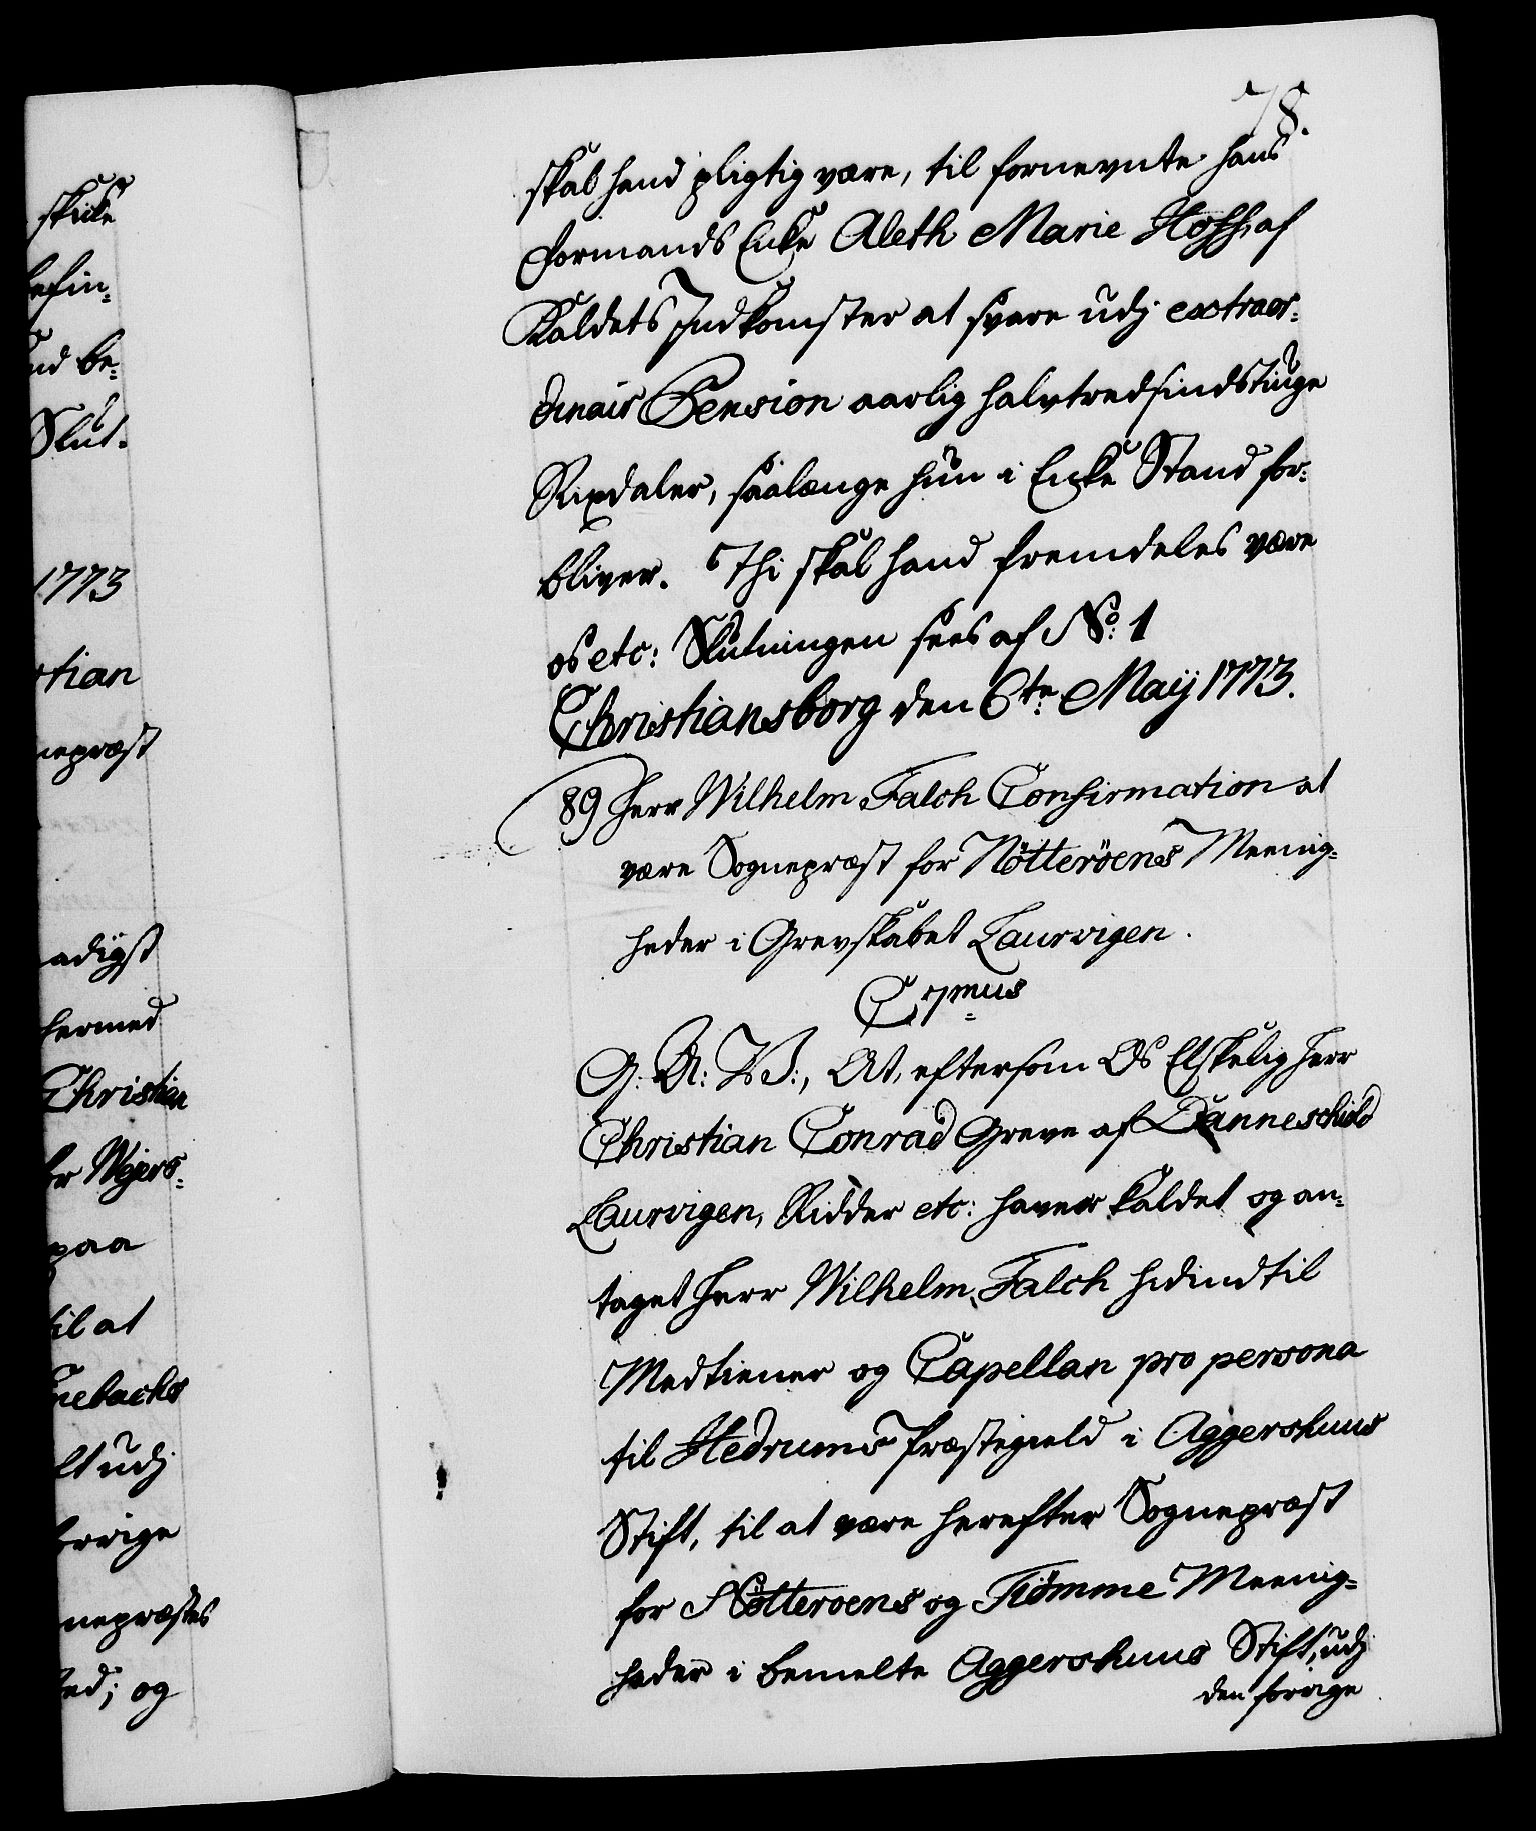 78.
skal hand pligtig være, til fornevnte hans
Formands Enke Aleth Marie Hoff, af
Kaldets Indkomster at svare udj extraor-
dinair Pension aarlig halvtredsindstiuge
Rixdaler, saalænge hun i Enke Stand for-
bliver. Thi skal hand fremdeles være
os etc: Slutningen sees af No: 1
Christiansborg den 6te May 1773.
89 Herr Wilhelm Falch Confirmation at
være Sognepræst for Nötteröens Meenig-
heder i Grevskabet Laurvigen.
C. 7mus
G: A: V:, At, eftersom Os Elskelig Herr
Christian Conrad Greve af Danneschiold
Laurvigen, Ridder etc: haver kaldet og an-
taget Herr Wilhelm Falch hidindtil
Medtiener og Capellan pro persona
til Hedrums Præstegield i Aggershuus
Stift, til at være herefter Sognepræst
for Nötteroens og Tiömme Meenig-
heder i bemelte Aggershuus Stift, udj
den forrige
skule
befin-
und be-
Slut-
1773
tian
nepræst
adigst
hermed
Christian
Wejers-
paa
til at
nebachs
lt udj
forrige
nepræstes
ed; og